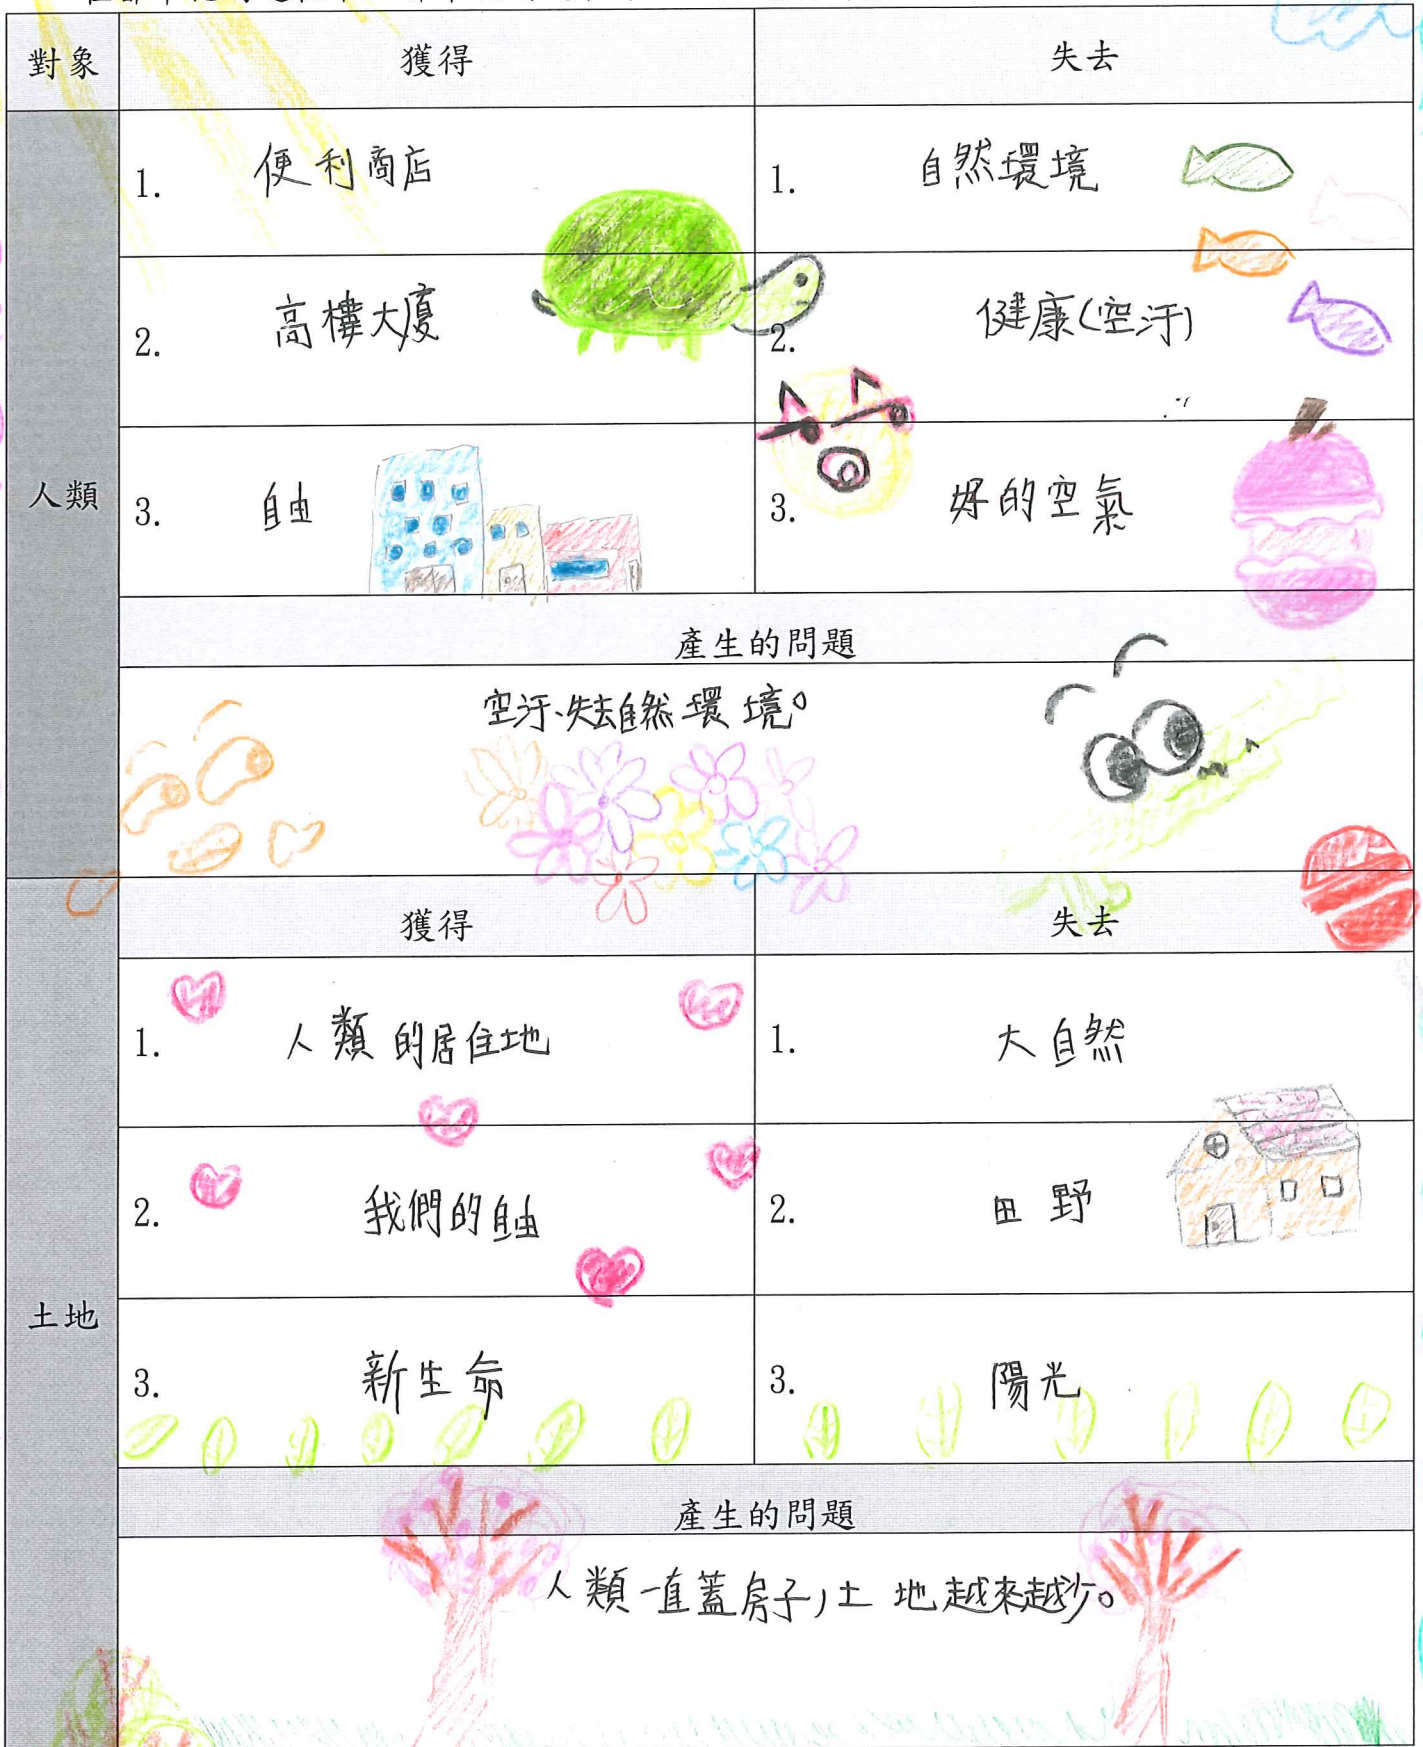 對象 獲得 失去
人類
1. 便利商店 1. 自然環境
2. 高樓大廈 2. 健康(空汙)
3. 自由 3. 好的空氣
產生的問題
空汙、失去自然環境。
土地
獲得 失去
1. 人類的居住地 1. 大自然
2. 我們的自由 2. 田野
3. 新生命 3. 陽光
產生的問題
人類一直蓋房子,土地越來越少。